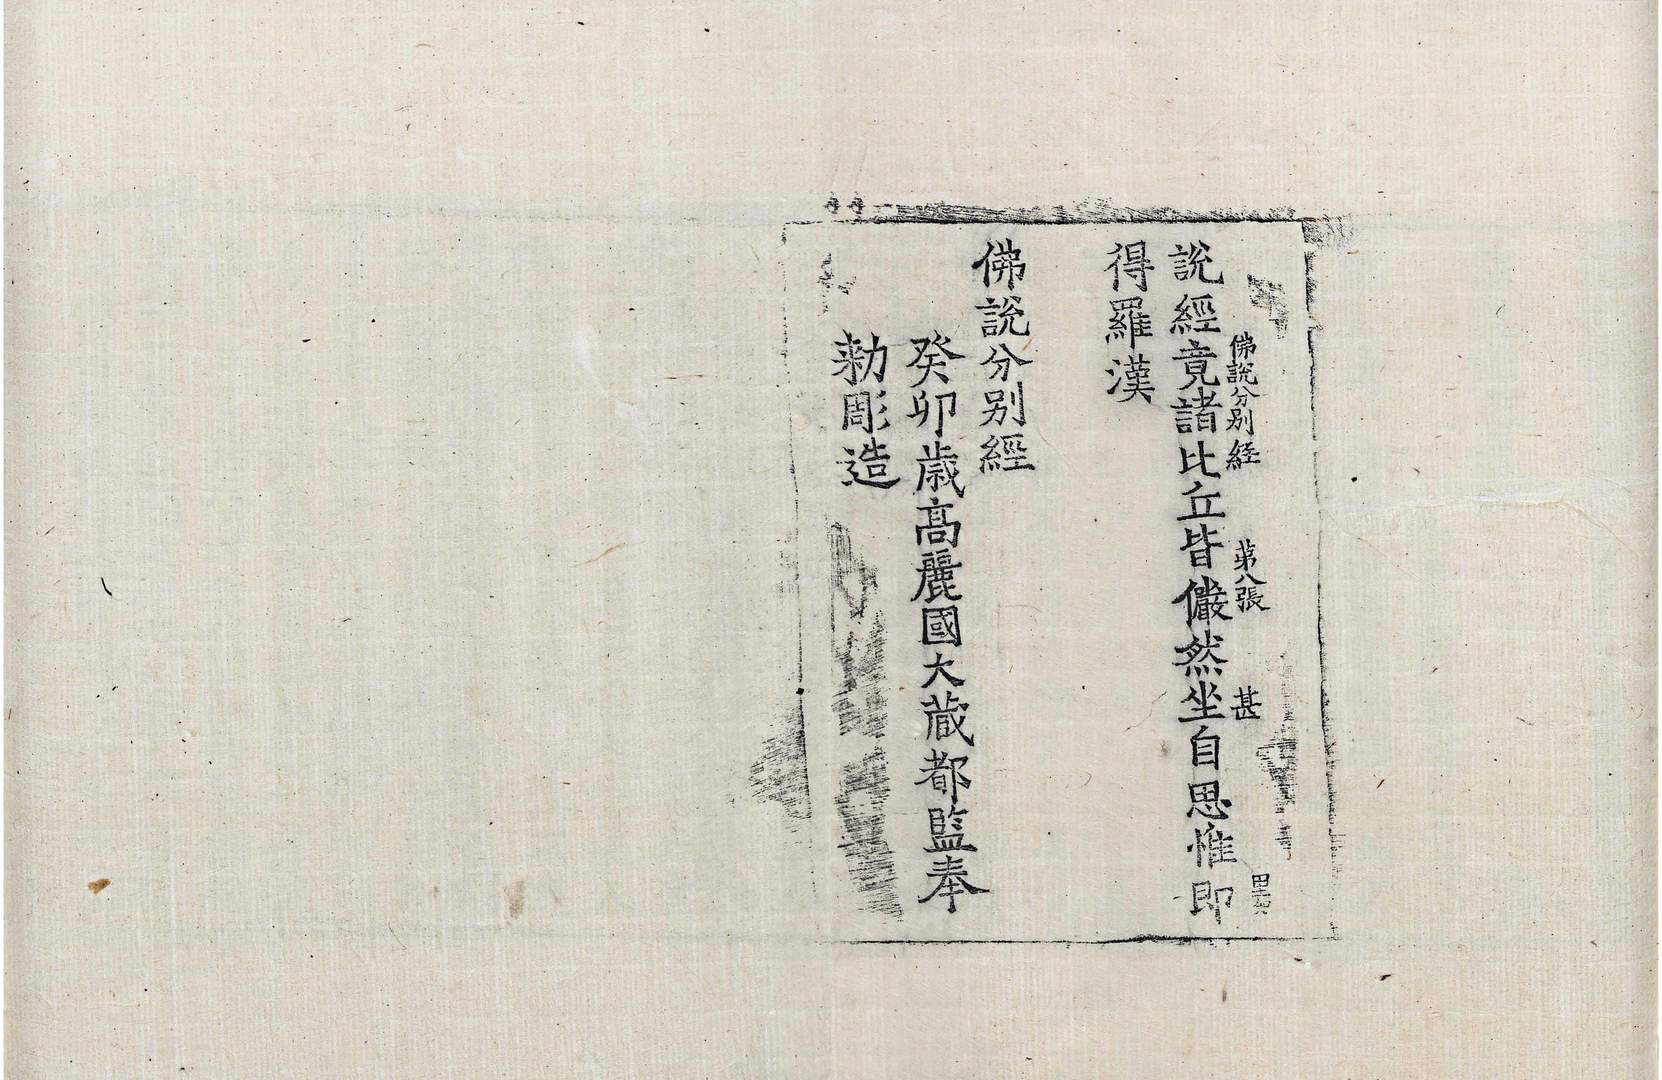 佛說分別經 第八張 甚
說經竟諸比丘皆儼然坐自思惟即
得羅漢
佛說分別經
癸卯歳高麗國大藏都監奉
勅彫造